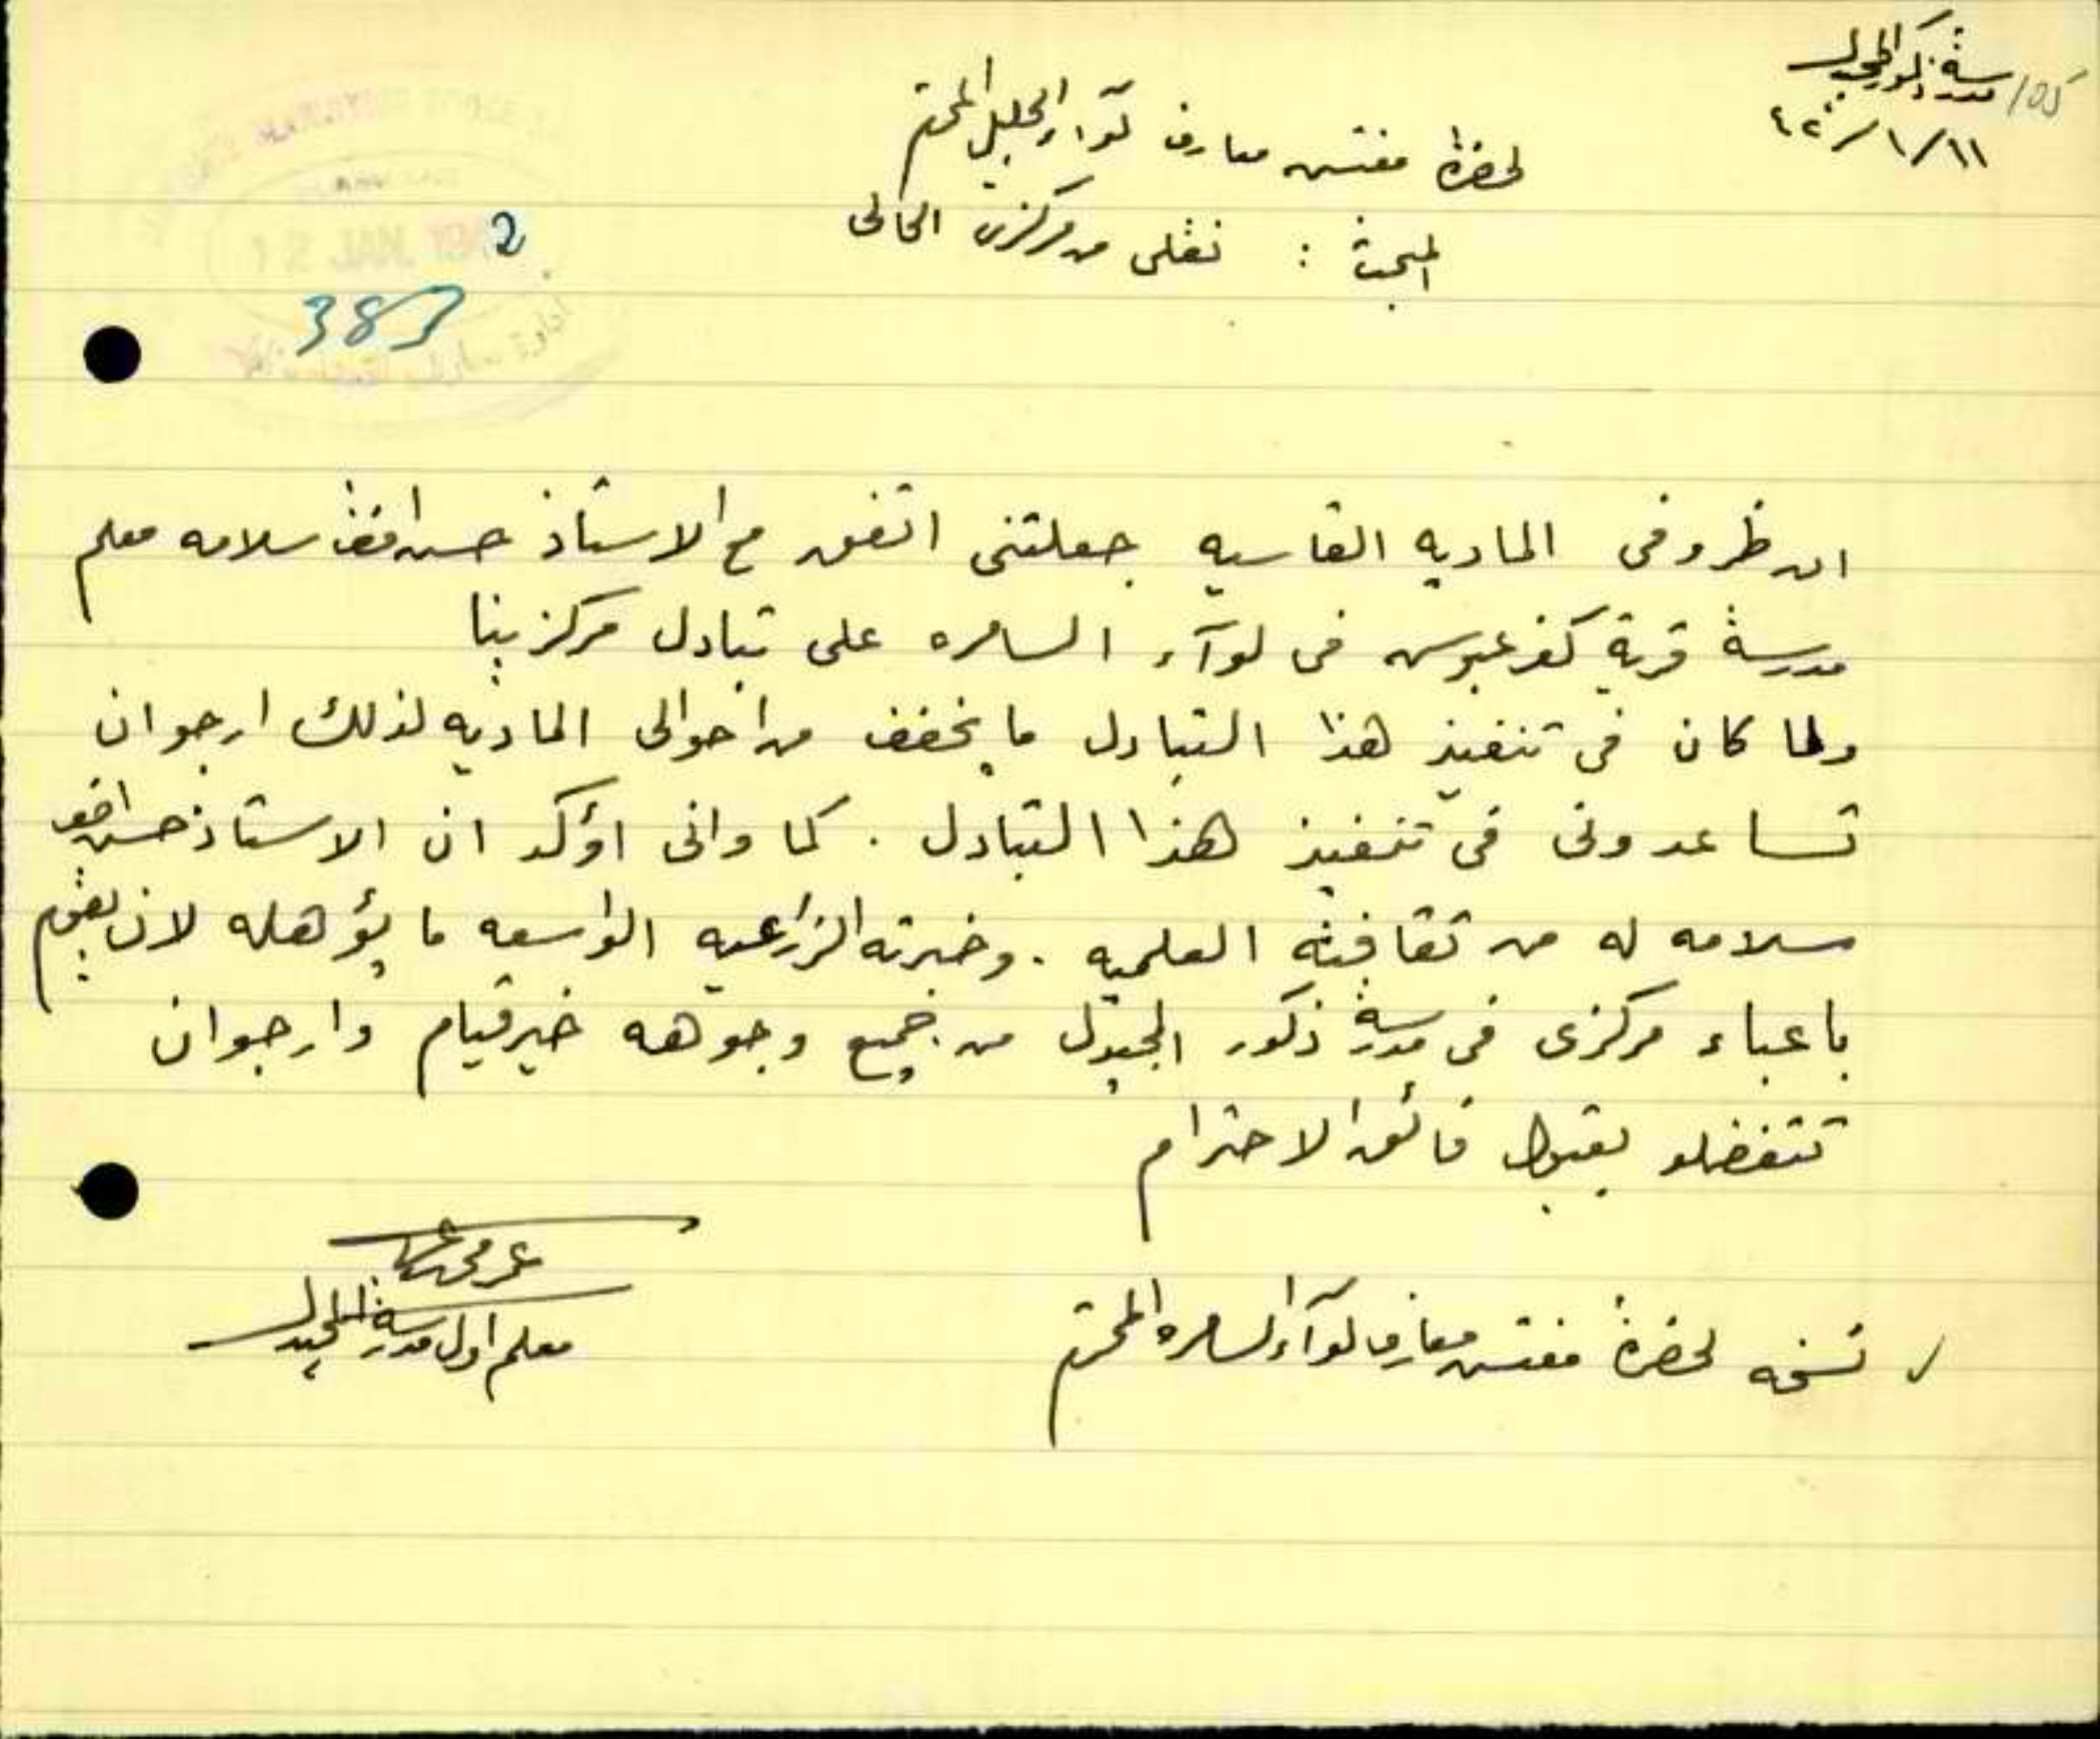 مدرسة ذكور المجيدل
٤٢/١/١١
لحضرة مفتش معارف لوآء الجليل المحترم
المبحث : نقلى من مركزى الحالى
12 JAN. 1942
383
ان ظروفى الماديه القاسيه جعلتنى اتفق مع الاستاذ حسن افندي سلامه معلم
مدرسة قرية كفر عبوس فى لوآء السامره على تبادل مركزينا
ولما كان فى تنفيذ هذا التبادل ما يخفف من احوالى الماديه لذلك ارجو ان
تساعدونى فى تنفيذ هذا التبادل . كما وانى اؤكد ان الاستاذ حسن افندي
سلامه له من ثقافته العلميه . وخبرته الزراعيه الواسعه ما يؤهله لان يقوم
باعباء مركزى فى مدرسة ذكور المجيدل من جميع وجوهه خير قيام وارجو ان
تتفضلو بقبول فائق الاحترام
معلم اول مدرسة المجيدل
نسخه لحضرة مفتش معارف لوآء السامره المحترم